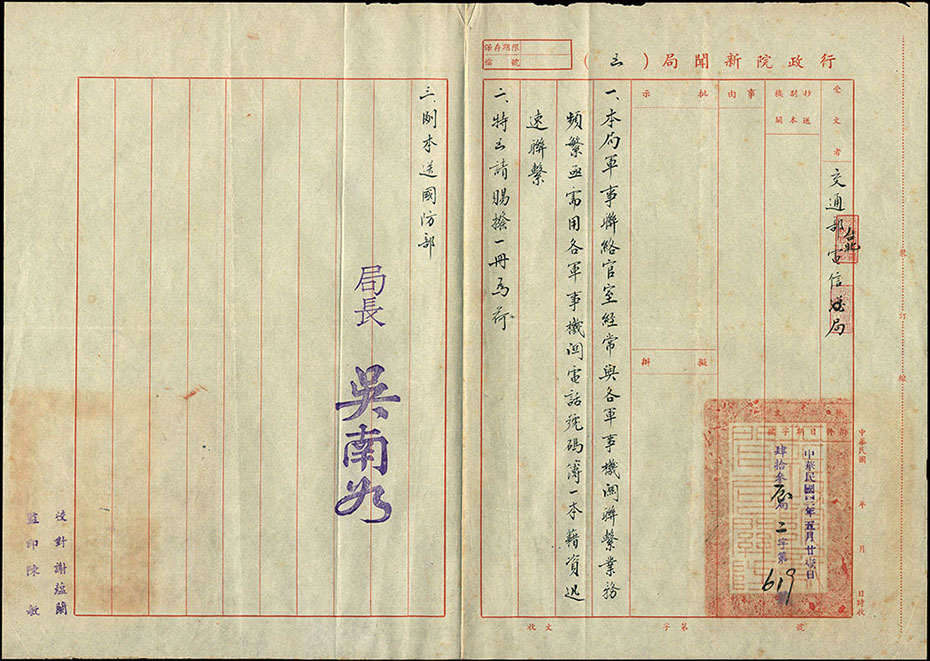 行政院新聞局(函)
保存期限
檔號
受文者
交通部台北電信局
抄送副本機關
事由
批示
擬辦
一、本局軍事聯絡官室經常與各軍事機關聯繫業務
頻繁亟需用各軍事機関電話號碼簿一本藉資迅
速聯繫
二、特函請賜撥一冊為荷
三、副本送國防部
局長 吳南如
中華民國 年 月 日時收
日期字號
中華民國四三年五月廿 日
肆拾叁 局二字第619號
收文 字第 號
裝訂線
校對謝蘊蘭
監印陳敏